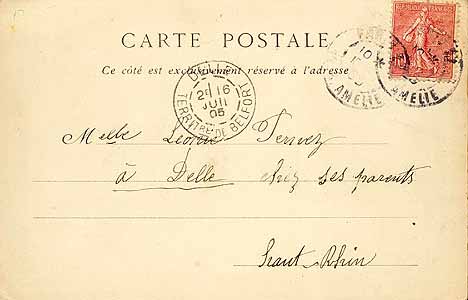 CARTE POSTALE
Ce côté est exclusivement réservé à l'adresse
REPUBLIQUE FRANÇAISE
AMELIE
AMELIE
DELLE
2E 16
JUIL
05
TERRIT.RE DE BELFORT
Melle Léonie
à Delle chez ses parents
Haut-Rhin